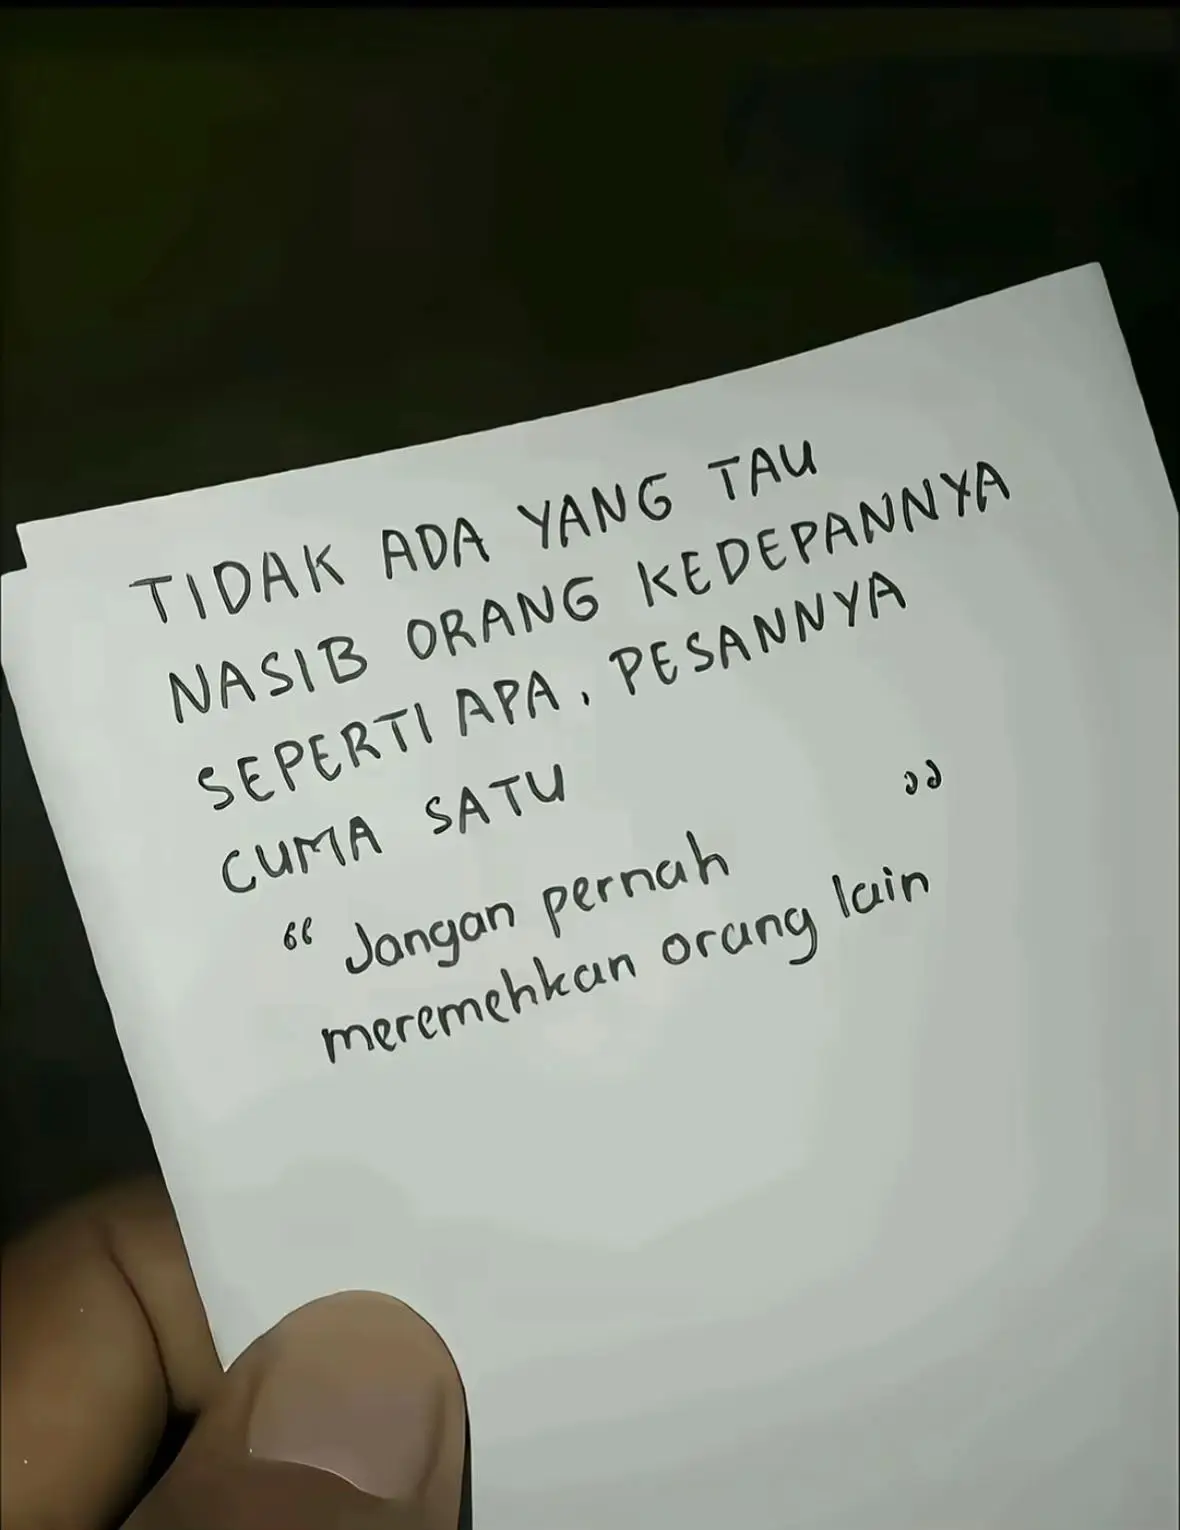 TIDAK ADA YANG TAU
NASIB ORANG KEDEPANNYA
SEPERTI APA, PESANNYA
CUMA SATU
“ Jangan pernah ”
meremehkan orang lain